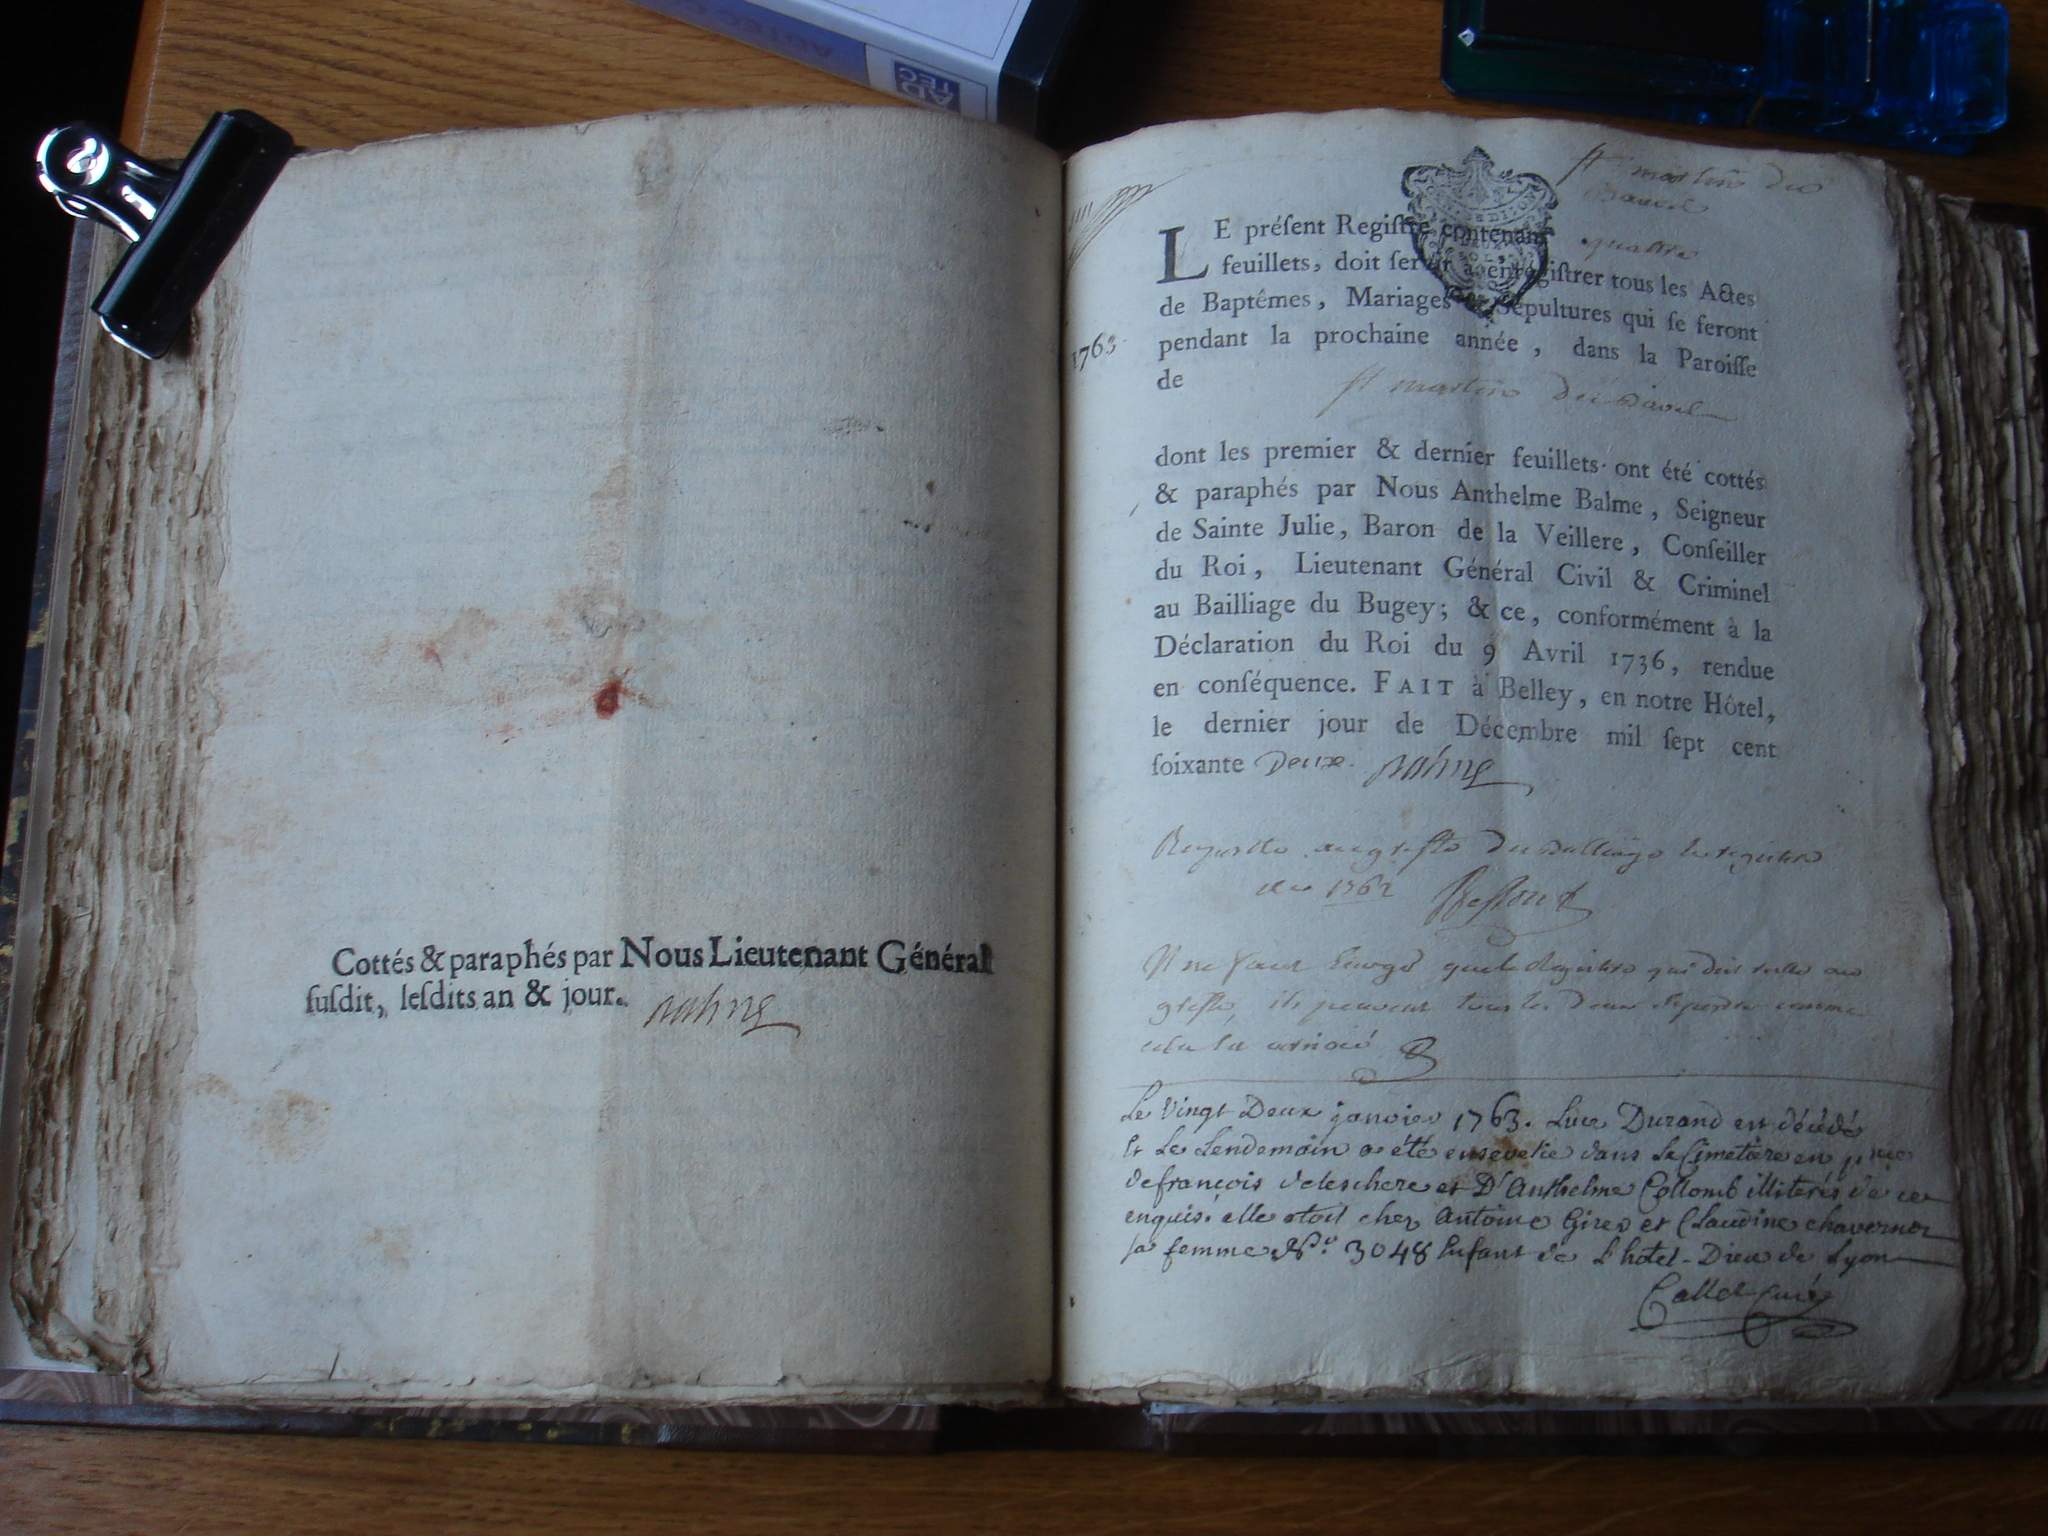 AD
TEC
Cottés & paraphés par Nous Lieutenant Général
ſuſdit, leſdits an & jour. Balme
st martin de
Bavel
quattre
LE préſent Regiſtre contenant
feuillets, doit ſervir à enrégiſtrer tous les Actes
de Baptêmes, Mariages & Sépultures qui ſe feront
1763
pendant la prochaine année, dans la Paroiſſe
de st martin de Bavel
dont les premier & dernier feuillets ont été cottés
& paraphés par Nous Anthelme Balme, Seigneur
de Sainte Julie, Baron de la Veillere, Conſeiller
du Roi, Lieutenant Général Civil & Criminel
au Bailliage du Bugey; & ce, conformément à la
Déclaration du Roi du 9 Avril 1736, rendue
en conſéquence. FAIT à Belley, en notre Hôtel,
le dernier jour de Décembre mil ſept cent
ſoixante Deux. Balme
au greffe du Balliage le registre
de 1762
Il ne faut que le Registre qui doit rester au
greffe, ils peuvent tous les deux comme
cela est arrivé
Le vingt Deux janvier 1763. Luce Durand est décédé
et Le Lendemain a été ensevelie dans Le Cimetière en
de françois deleschere et D'Anthelme Collomb illiterés de ce
enquis. elle etoit chez Antoine Girer et Claudine chavernor
sa femme N.o 3048 Enfant de L'hotel-Dieu de Lyon
Curé